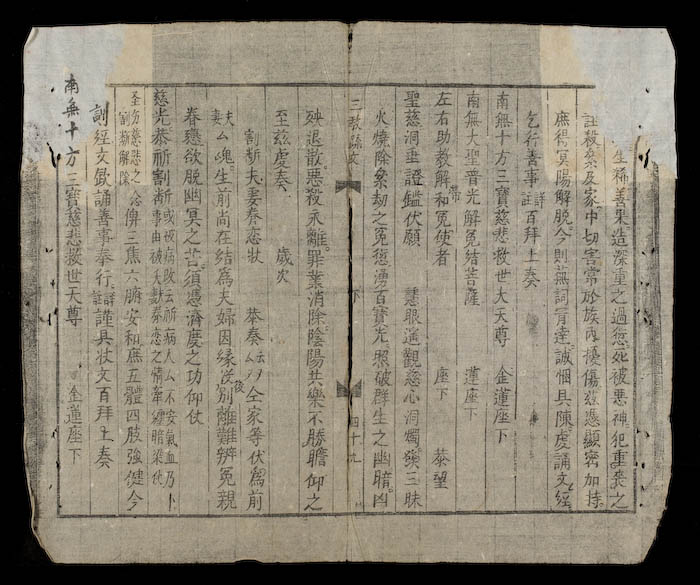 生稀善果造深重之過愆死被惡神犯重喪之
註殺祭及家中切害常於族內擾傷兹憑顯密加持
庶得冥陽解脫今則蕪詞育達誠悃具陳虔誦文經
乞行善事詳註百拜上奏
南無十方三寶慈悲救世大天尊 金蓮座下
南無大聖普光解冤結菩薩 蓮座下
左右助教解和冤使者 座下 恭望
聖慈洞垂證鑑伏願 慧眼遙觀慈心洞燭發三昧
火燒除累劫之冤愆湧百寶光照破群生之幽暗凶
三教疏文 下 四十九
殃退散惡殺永離罪業消除陰陽共樂不勝瞻仰之
至兹虔奏 歲次
割斷夫妻眷戀狀 恭奏 仝家等伏爲前
夫妻厶魂生前尚在結爲夫婦因緣後別離難辨冤親
眷戀欲脫幽冥之苦須憑濟度之功仰仗
慈光恭祈割斷
割斷解除俾三焦六腑安和庶五體四肢強健今
誦善事奉行詳註謹具狀文百拜上奏
南無十方三寶慈悲救世大天尊 金蓮座下